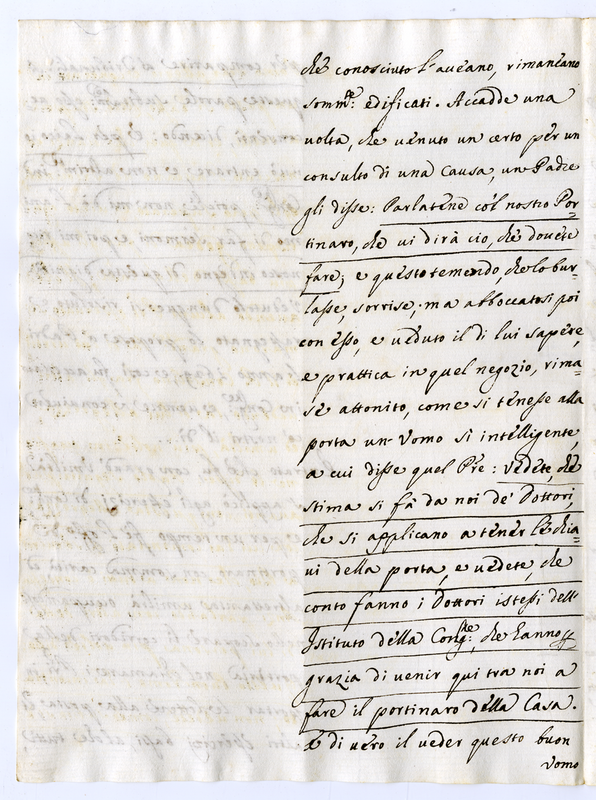 che conosciuto l'aveano, rimaneano
somm.te edificati. Accadde una
volta, che venuto un certo per un
consulto di una Causa, un Padre
gli disse: Parlatene col nostro Por=
tinaro, che vi dirà ciò, che dovete
fare; e questo temendo, che lo bur=
lasse, sorrise, ma abboccatosi poi
con esso, e veduto il di lui sapere,
e prattica in quel negozio, rima=
se attonito, come si tenesse alla
porta un Vomo sì intelligente,
a cui disse quel Pre: vedete, che
stima si fà da noi de' Dottori,
che si applicano a tener le chia=
vi della porta, e vedete, che
conto fanno i Dottori istessi dell'
Istituto della Cong.ne, che hanno p
grazia di venir qui tra noi a
fare il portinaro della Casa.
E di vero il veder questo buon
Vomo